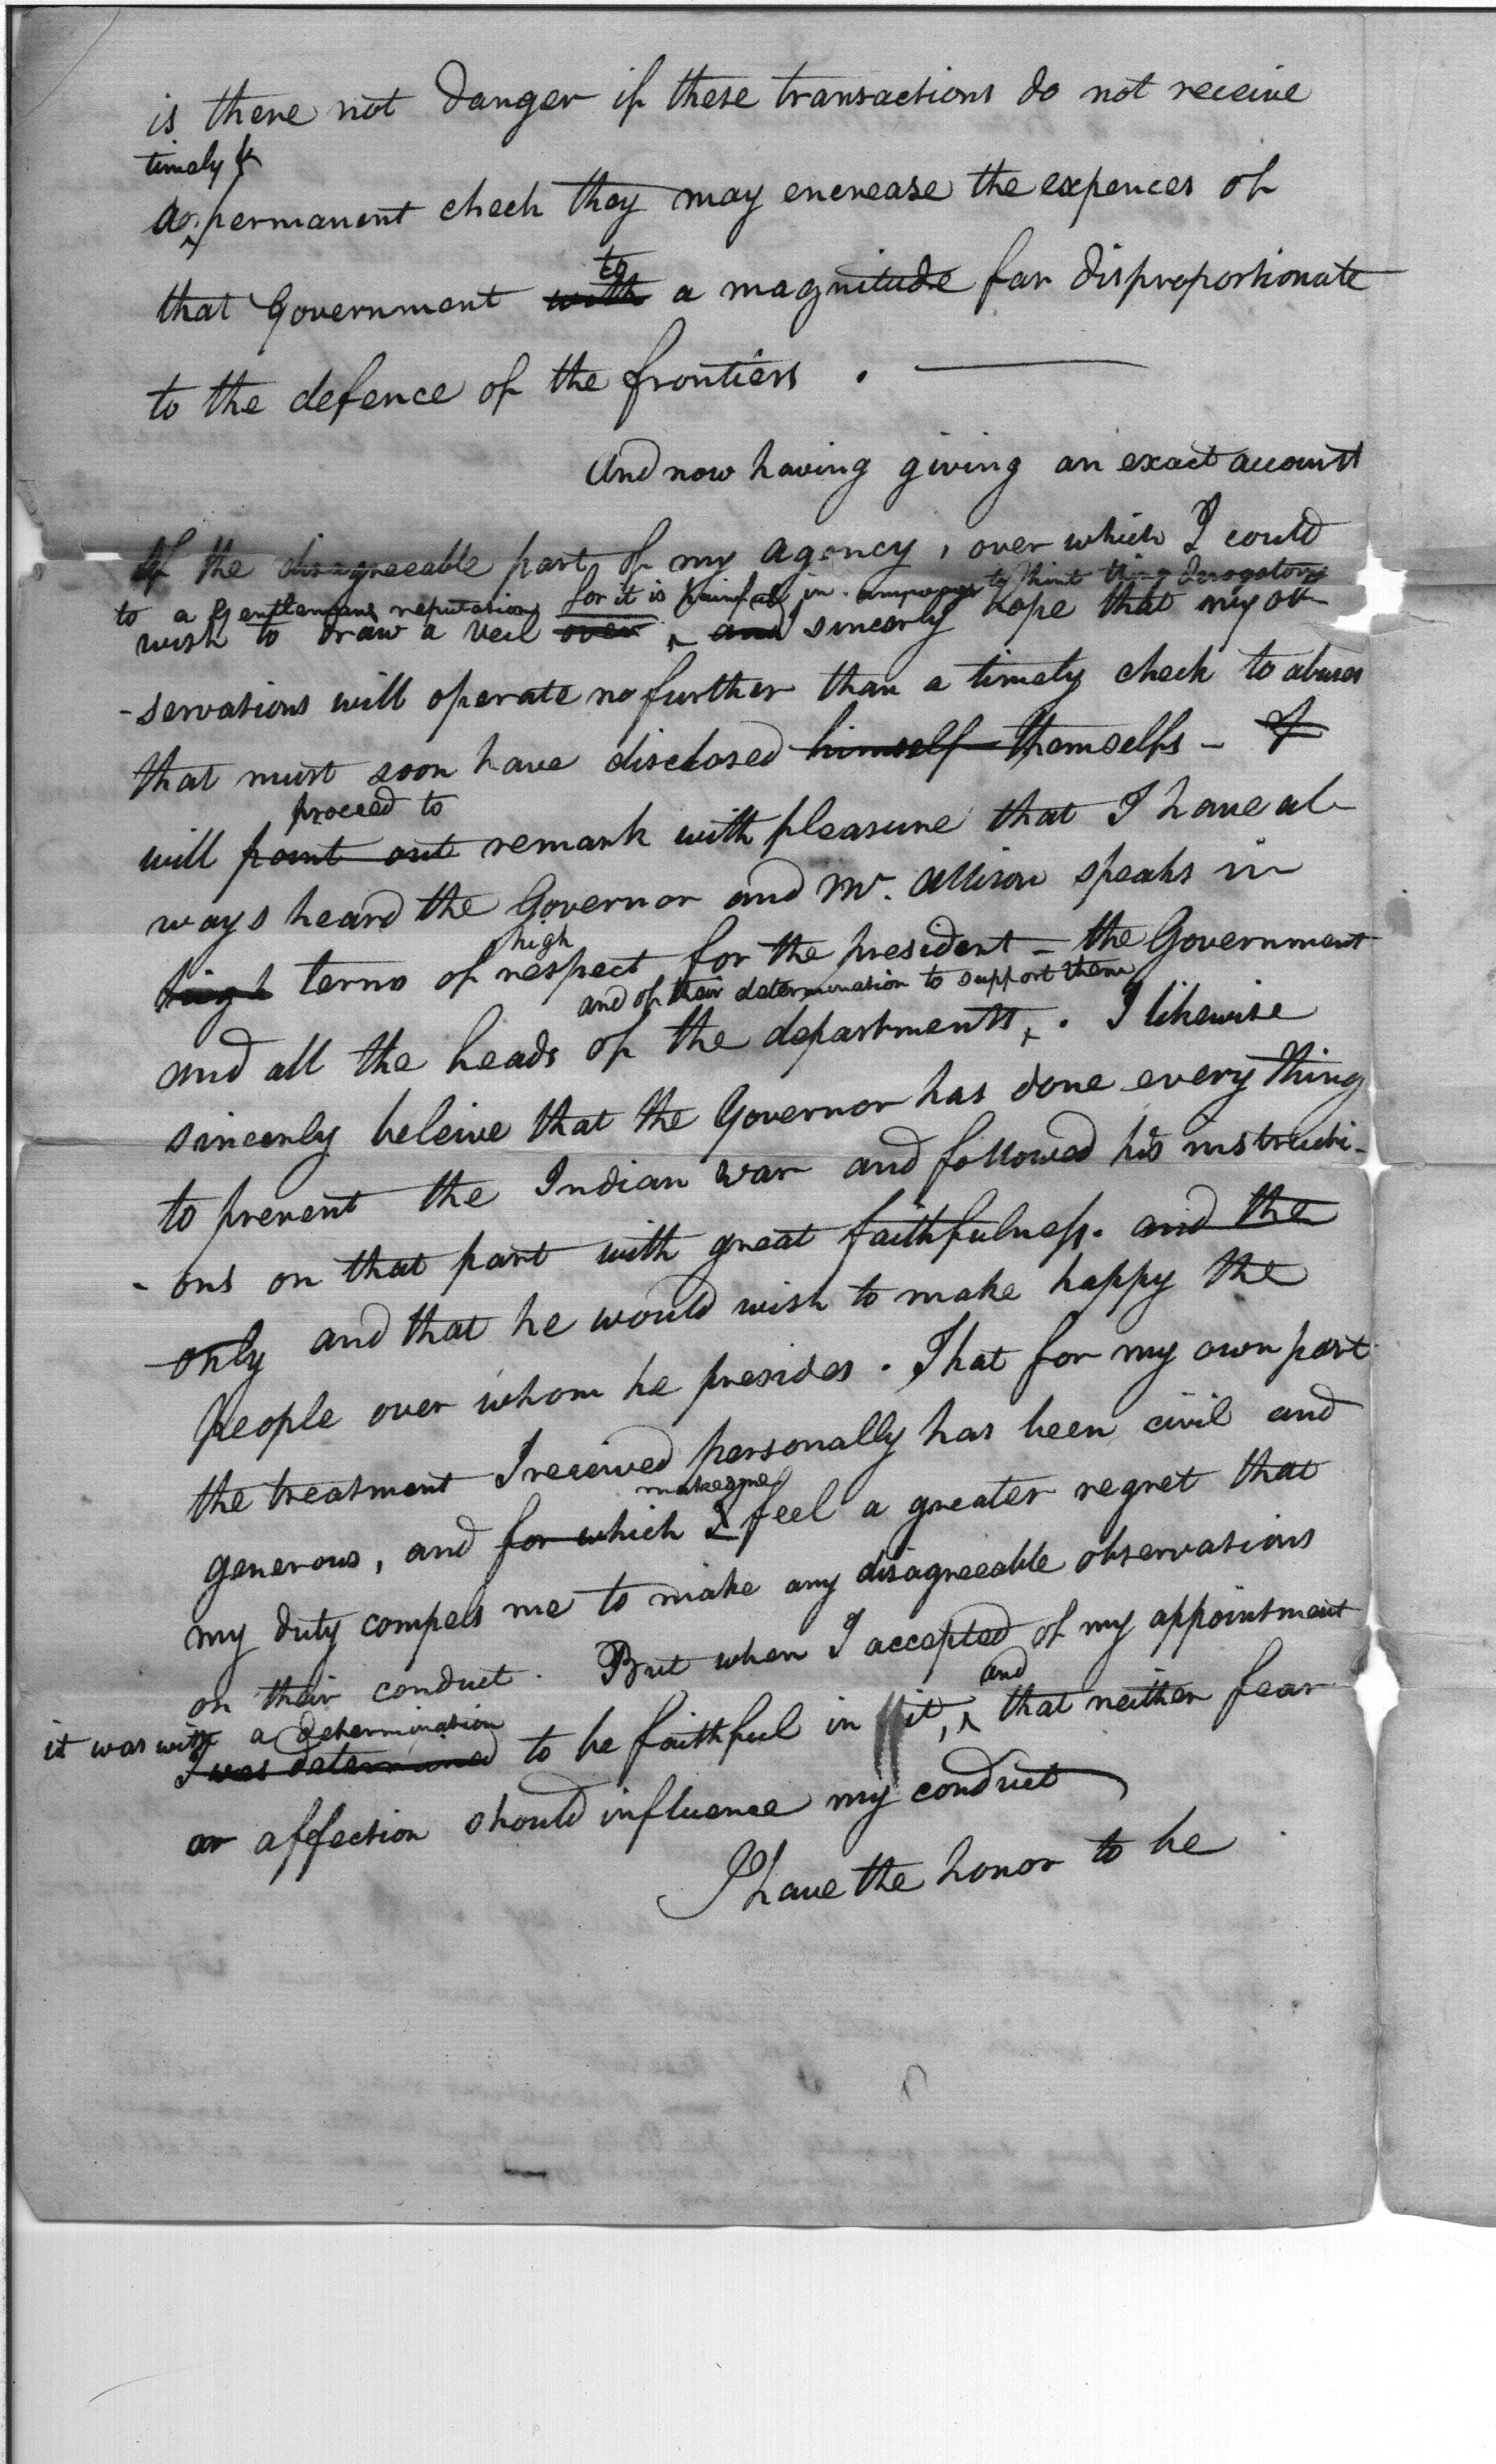 is there not danger if these transactions do not receive
timely &
a permanent check they may encrease the expences of
to
that Government with a magnitude far disproportionate
to the defence of the frontiers . —
And now having giving an exact account
of the disagreeable part of my agency , over which I could
for it is painful in to hint thing derogatory
to a Gentlemans reputation
wish to draw a veil over and sincerly hope that my ob
-servations will operate no further than a timely check to abuses
that must soon have disclosed himself themselfs - I
proceed to
will point out remark with pleasure that I have al
ways heard the Governor and Mr. Allison speaks in
high
high terms of respect for the president - the Government
and of their determination to support them
and all the heads of the departments . I likewise
sincerly beleive that the Governor has done every thing
to prevent the Indian war and followed his instructi-
- ons on that part with great faithfulness. and the
only and that he would wish to make happy the
people over whom he presides . That for my own part
the treatment I received personally has been civil and
makes me
generous , and for which I feel a greater regret that
my duty compels me to make any disagreeable observations
on their conduct . But when I accepted of my appointment
it was with a determination
and
I was determined to be faithful in it, that neither fear
or affection should influence my conduct
I have the honor to be